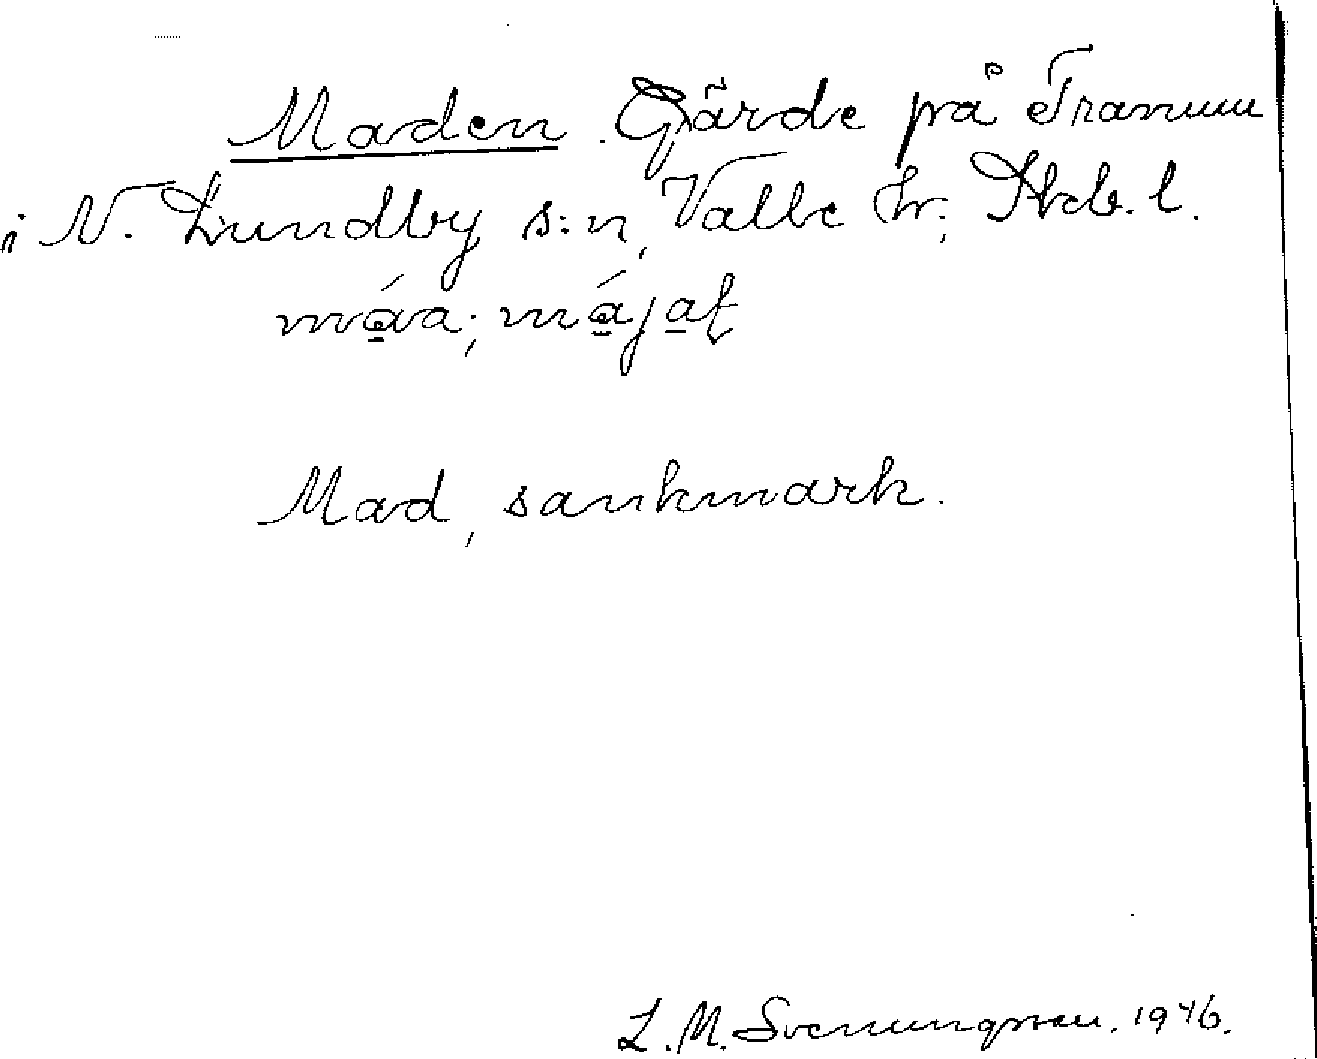 Maden. Gärde på Tranum
i N. Lundby s:n, Valle hr; Skb. l.
máa; májat
Mad, sankmark.
L. M. Svenungsson. 1946.